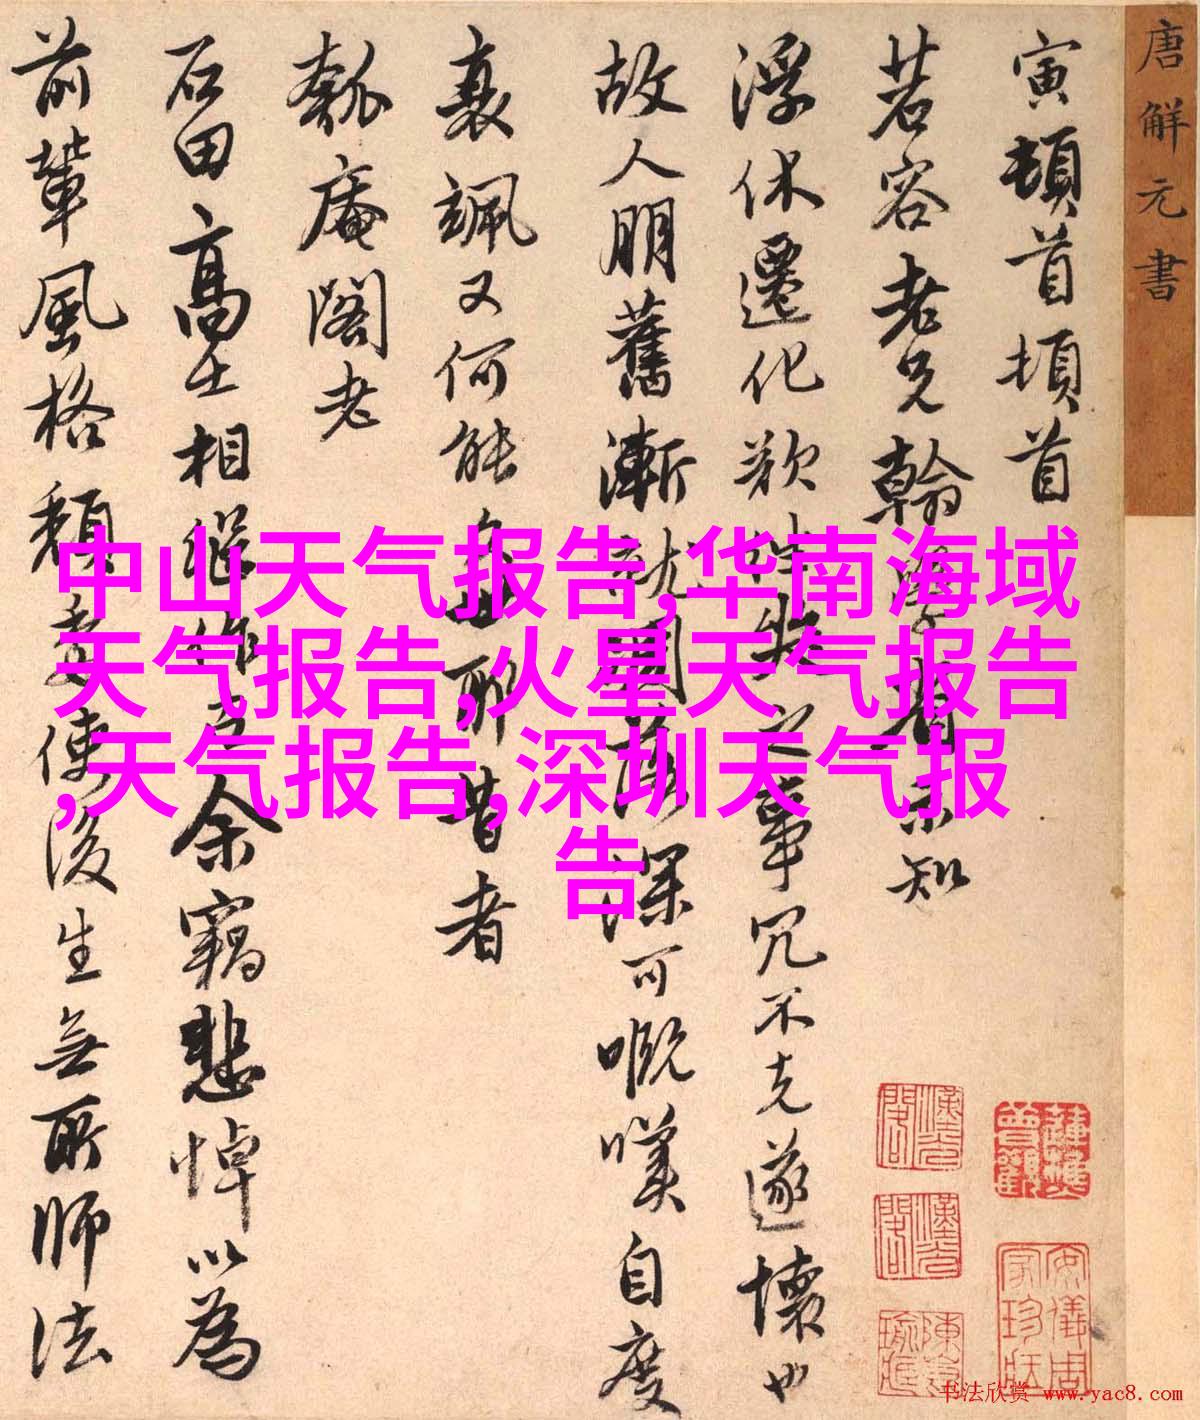 唐解元書
寅頓首頓首
茗容老兄翰學省示知
浮休遷化欲往
故人朋舊漸就凋落深可嘅嘆自度
衰颯又何能
瓠庵閣老
石田高士相繼作
前輩風格頹
事冗不克遂懷也
耶昔者
古余竊悲悼以為
使後生無所師法
中山天气报告,华南海域
天气报告,火星天气报告
,天气报告,深圳天气报
告
书法欣赏 www.yac8.com